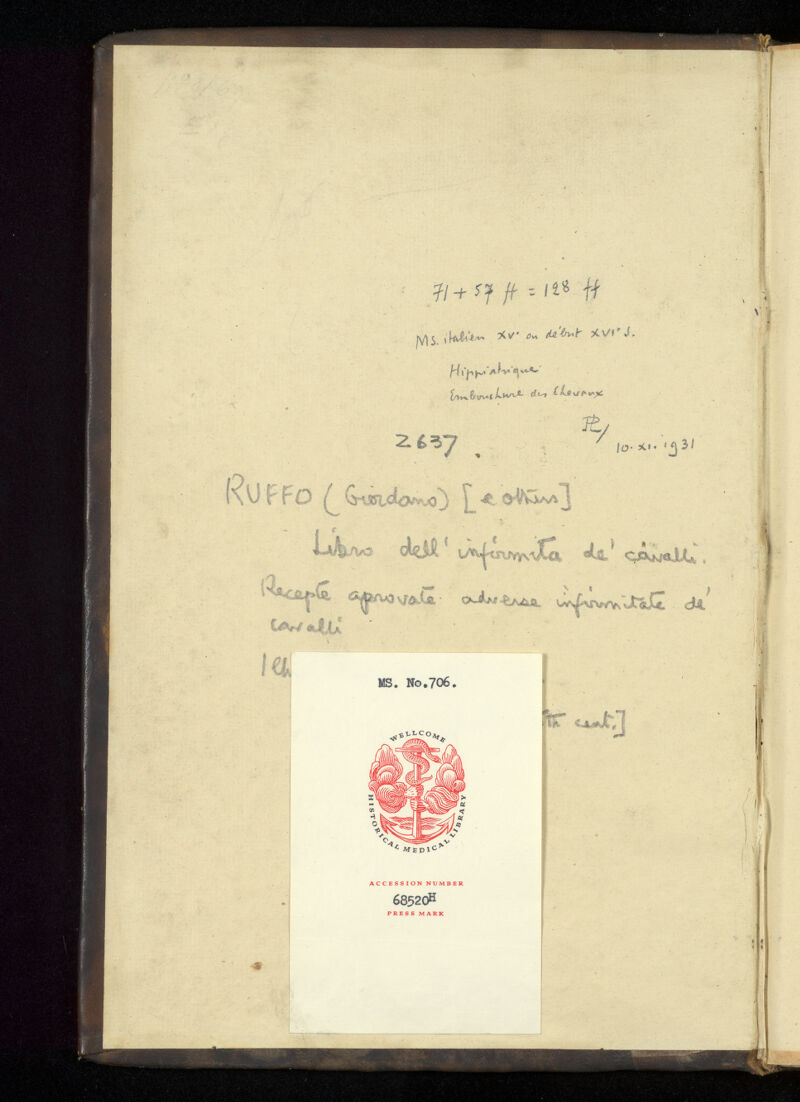 71 + 57 ff = 128 ff
MS. italien XVe ou début XVIe s.
Hippiatrique
Embouchure des Chevaux
10.XI.1931
2637.
RUFFO (Giordano) [& others]
Libro dell' infirmita de' cavalli.
Recepte aprovate adverse infirmitate de'
cavalli
th cent.]
MS. No.706.
WELLCOME
HISTORICAL MEDICAL LIBRARY
ACCESSION NUMBER
68520H
PRESS MARK